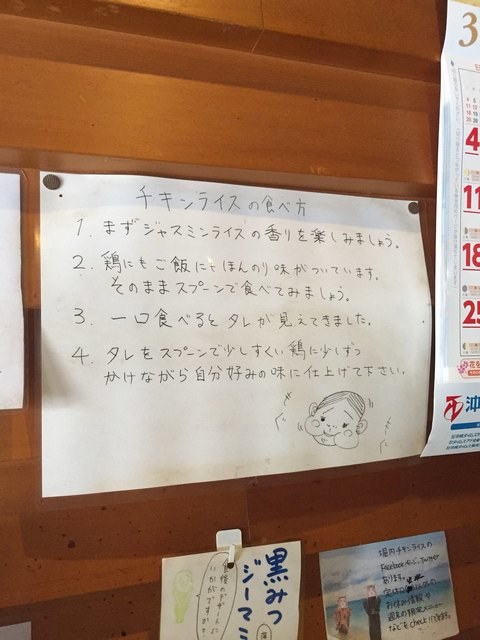 チキンライスの食べ方
1. まずジャスミンライスの香りを楽しみましょう。
2. 鶏にもご飯にもほんのり味がついています。
そのままスプーンで食べてみましょう。
3. 一口食べるとタレが見えてきました。
4. タレをスプーンで少しすくい鶏に少しずつ
かけながら自分好みの味に仕上げて下さい。
3
4
11
18
25
沖
黒みつ
ジーマミ
食後のデザートに
いかがですか?
堀内チキンライスの
Facebookページ、Twitter
あります。
お休み情報や
週末の限定メニュー
などをcheckできます。